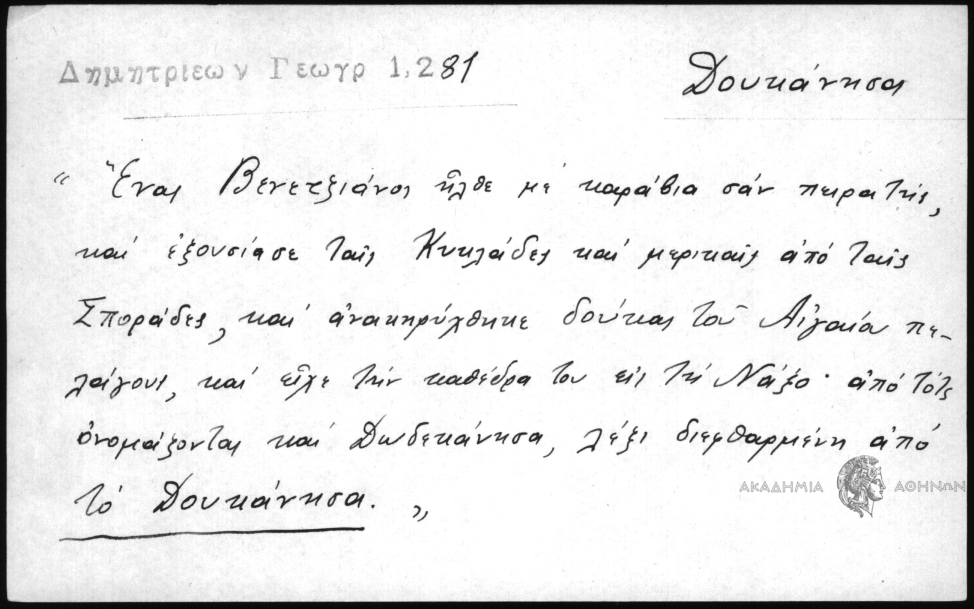 Δημητριεων Γεωγρ 1,281
Δουκάνησα
"Ἕνας Βενετζιάνος ἦλθε μέ καράβια σάν πειρατής,
καί ἐξουσίασε ταῖς Κυκλάδες καί μερικαῖς ἀπό ταῖς
Σποράδες, καί ἀνακηρύχθηκε δούκας τοῦ Αἰγαίου πε-
λάγους, καί εἶχε τήν καθέδρα του εἰς τή Νάξο· ἀπό τότε
ὀνομάζονται καί Δωδεκάνησα, λέξι διεφθαρμένη ἀπό
τό Δουκάνησα."
ΑΚΑΔΗΜΙΑ ΑΘΗΝΩΝ